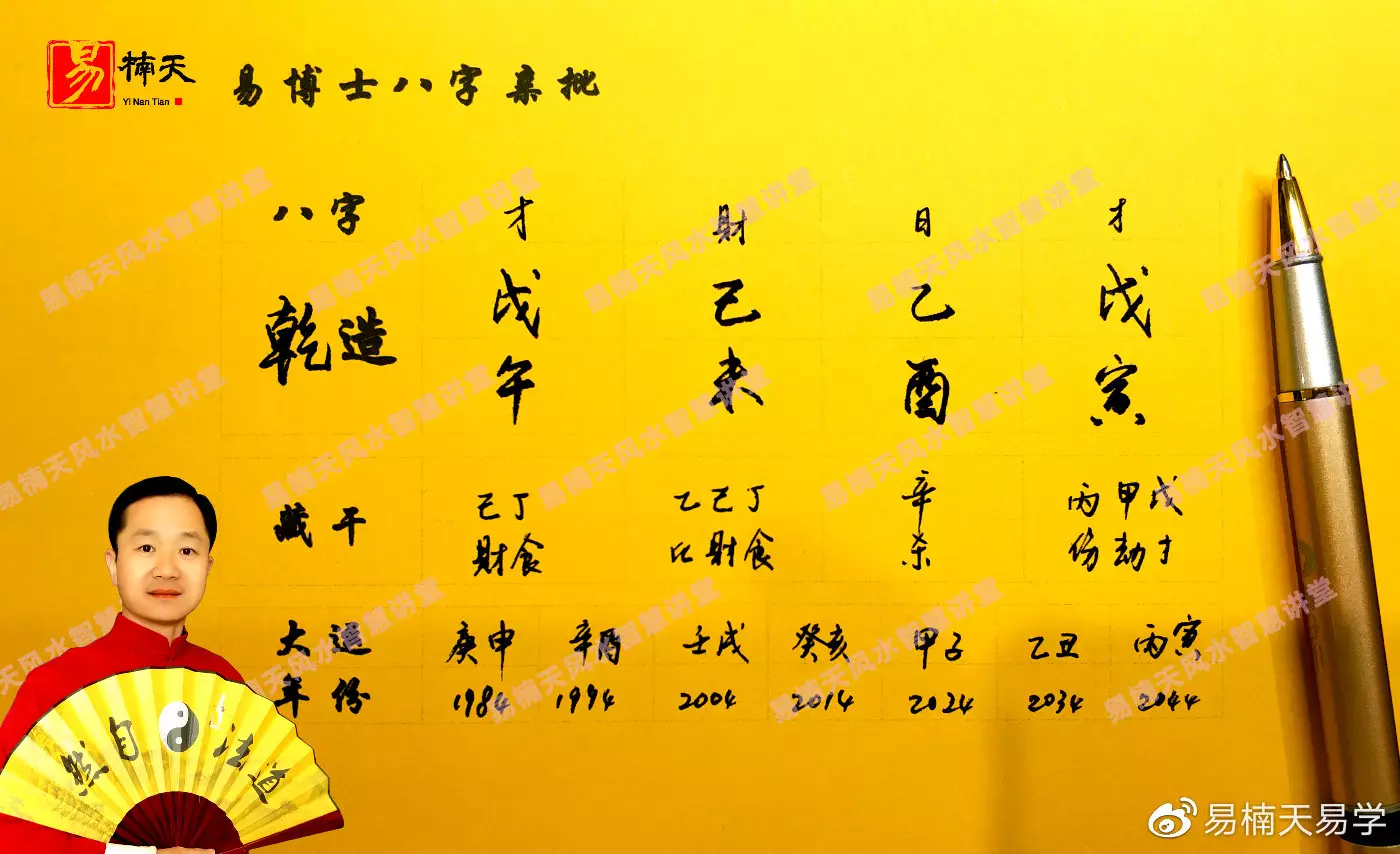 易 楠天
Yi Nan Tian
易博士八字亲批
八字 才 財 日 才
乾造 戊 己 乙 戊
午 未 酉 寅
藏干 己丁 乙己丁 辛 丙甲戊
財食 比財食 杀 伤劫才
大运 庚申 辛酉 壬戌 癸亥 甲子 乙丑 丙寅
年份 1984 1994 2004 2014 2024 2034 2044
然自法道
易楠天风水智慧讲堂
易楠天易学